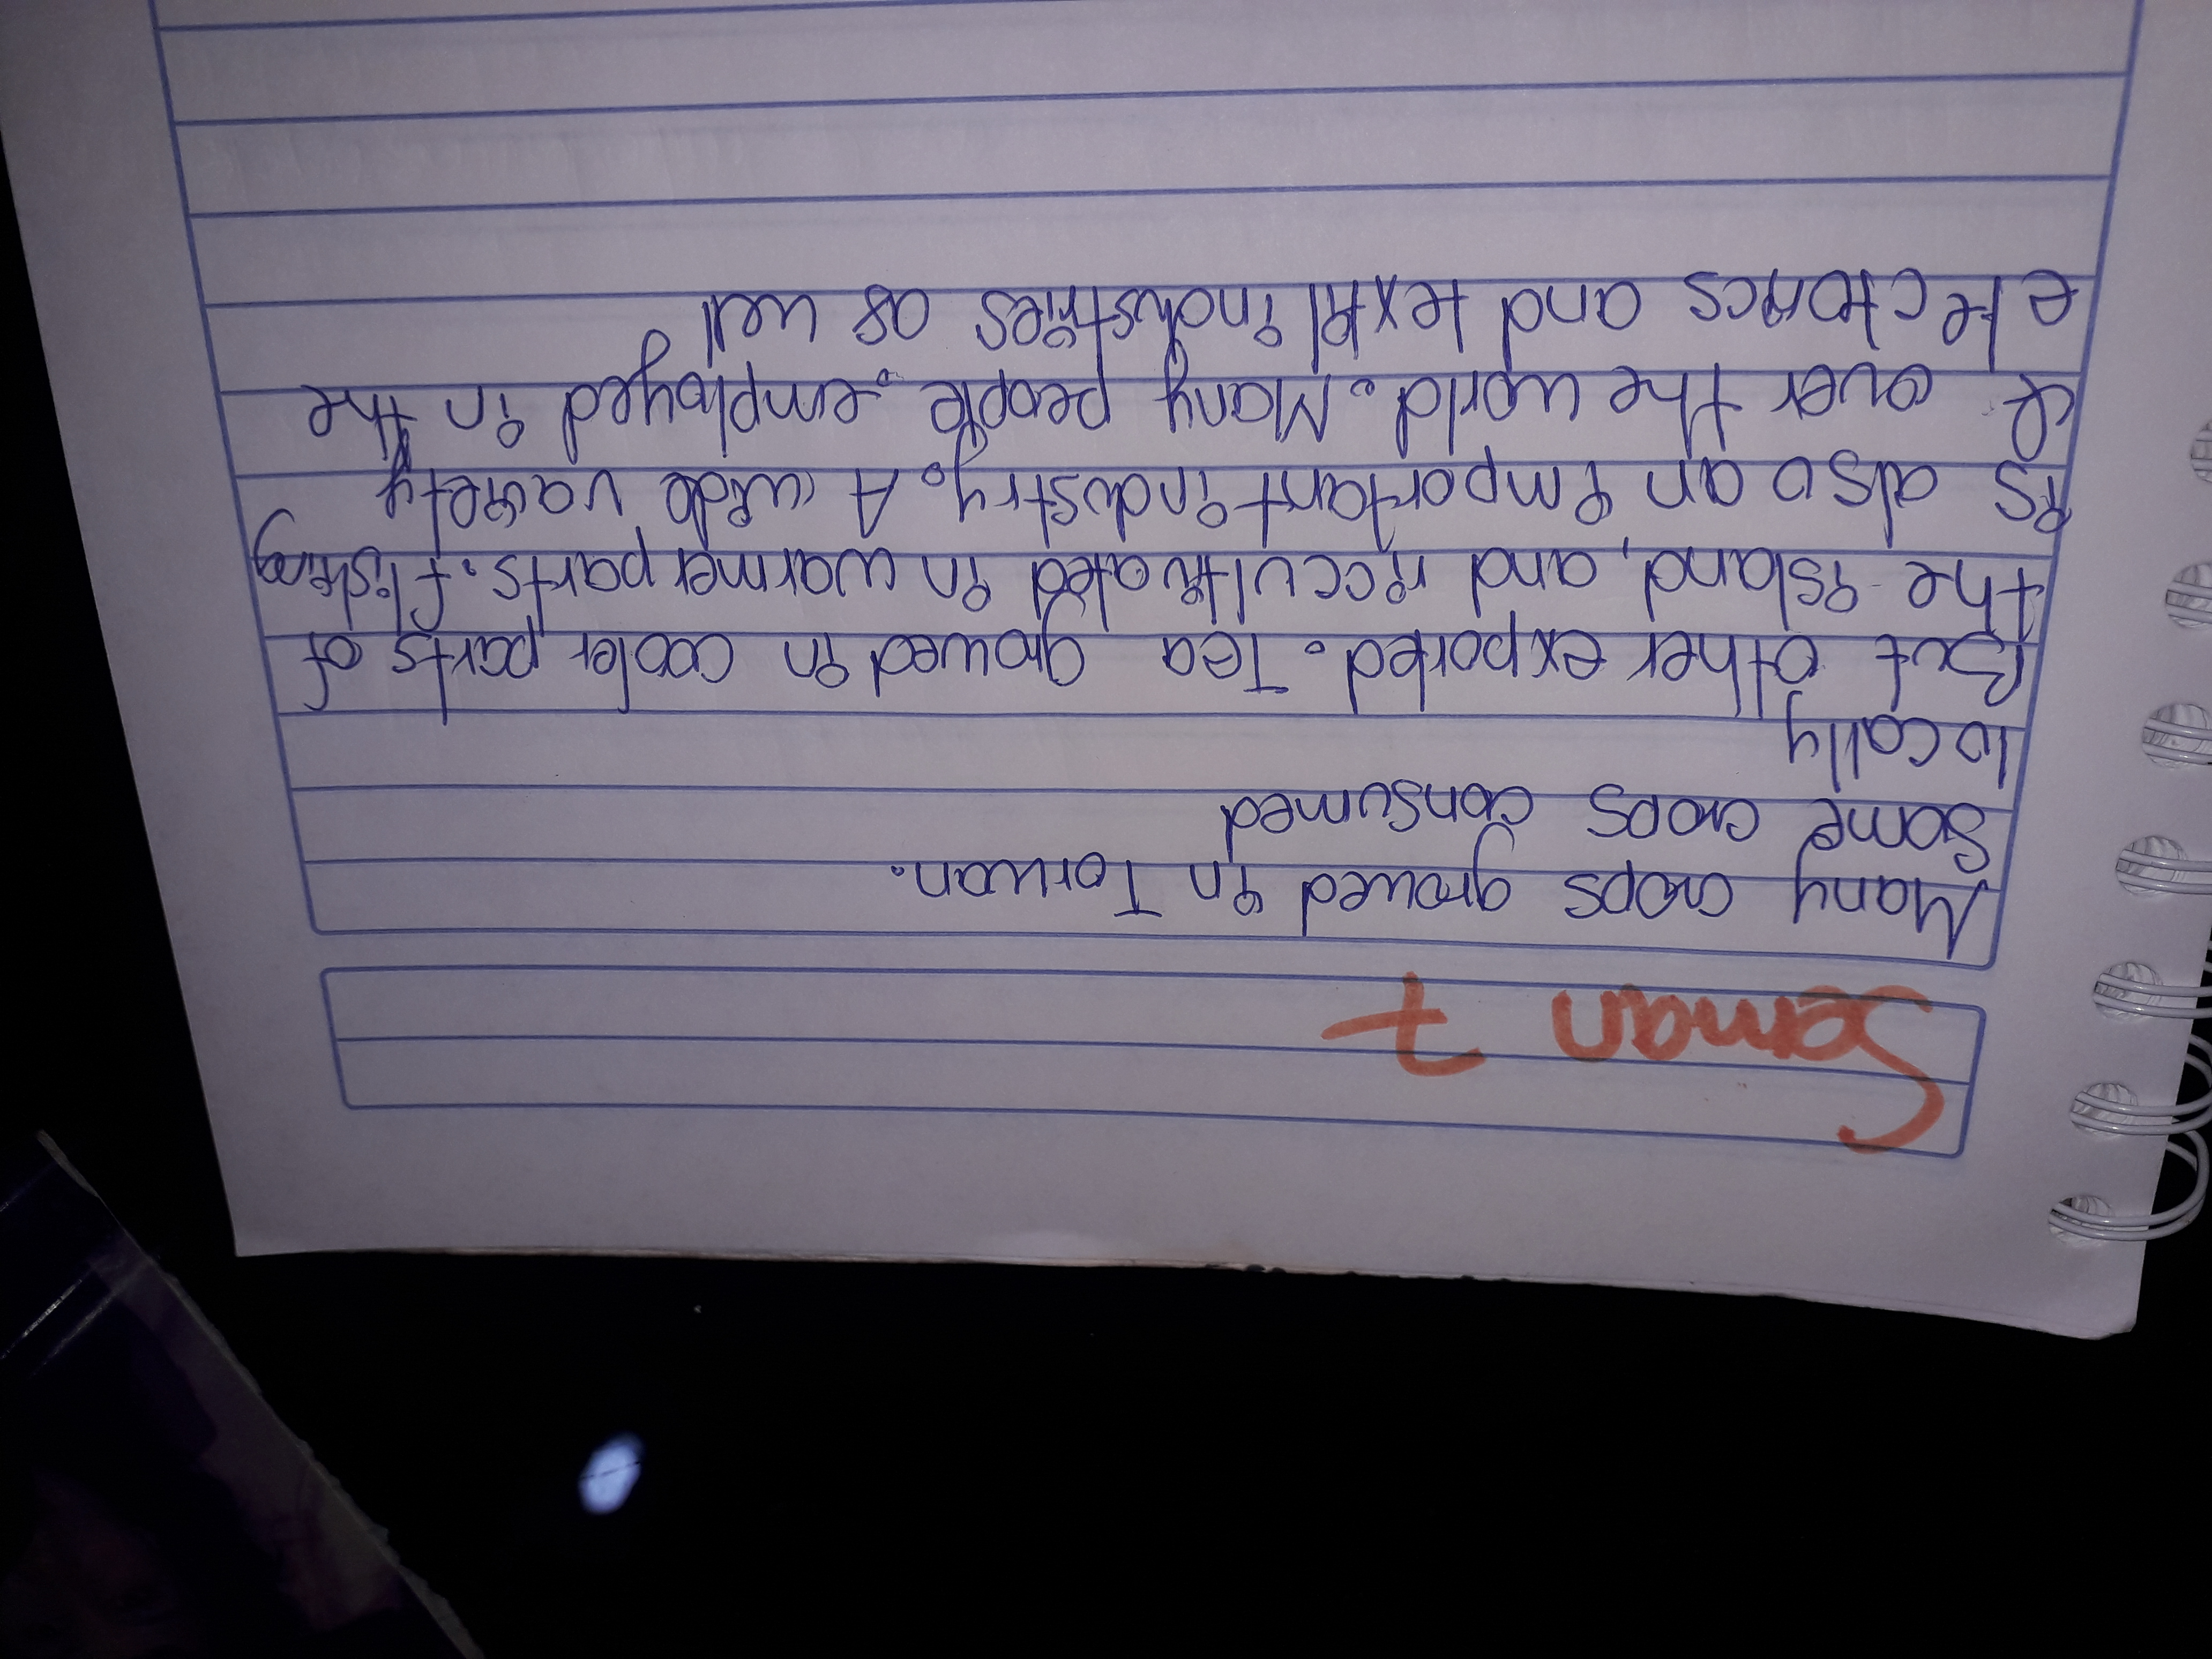 Seman 7
Many crops growed in Taiwan.
Some crops consumed
locally
But other exported. Tea growed in cooler parts of
the island, and riccultivated in warmer parts. fishing
is also an important industry. A wide variety
over the world. Many people employed in the
electonics and textil industries as well